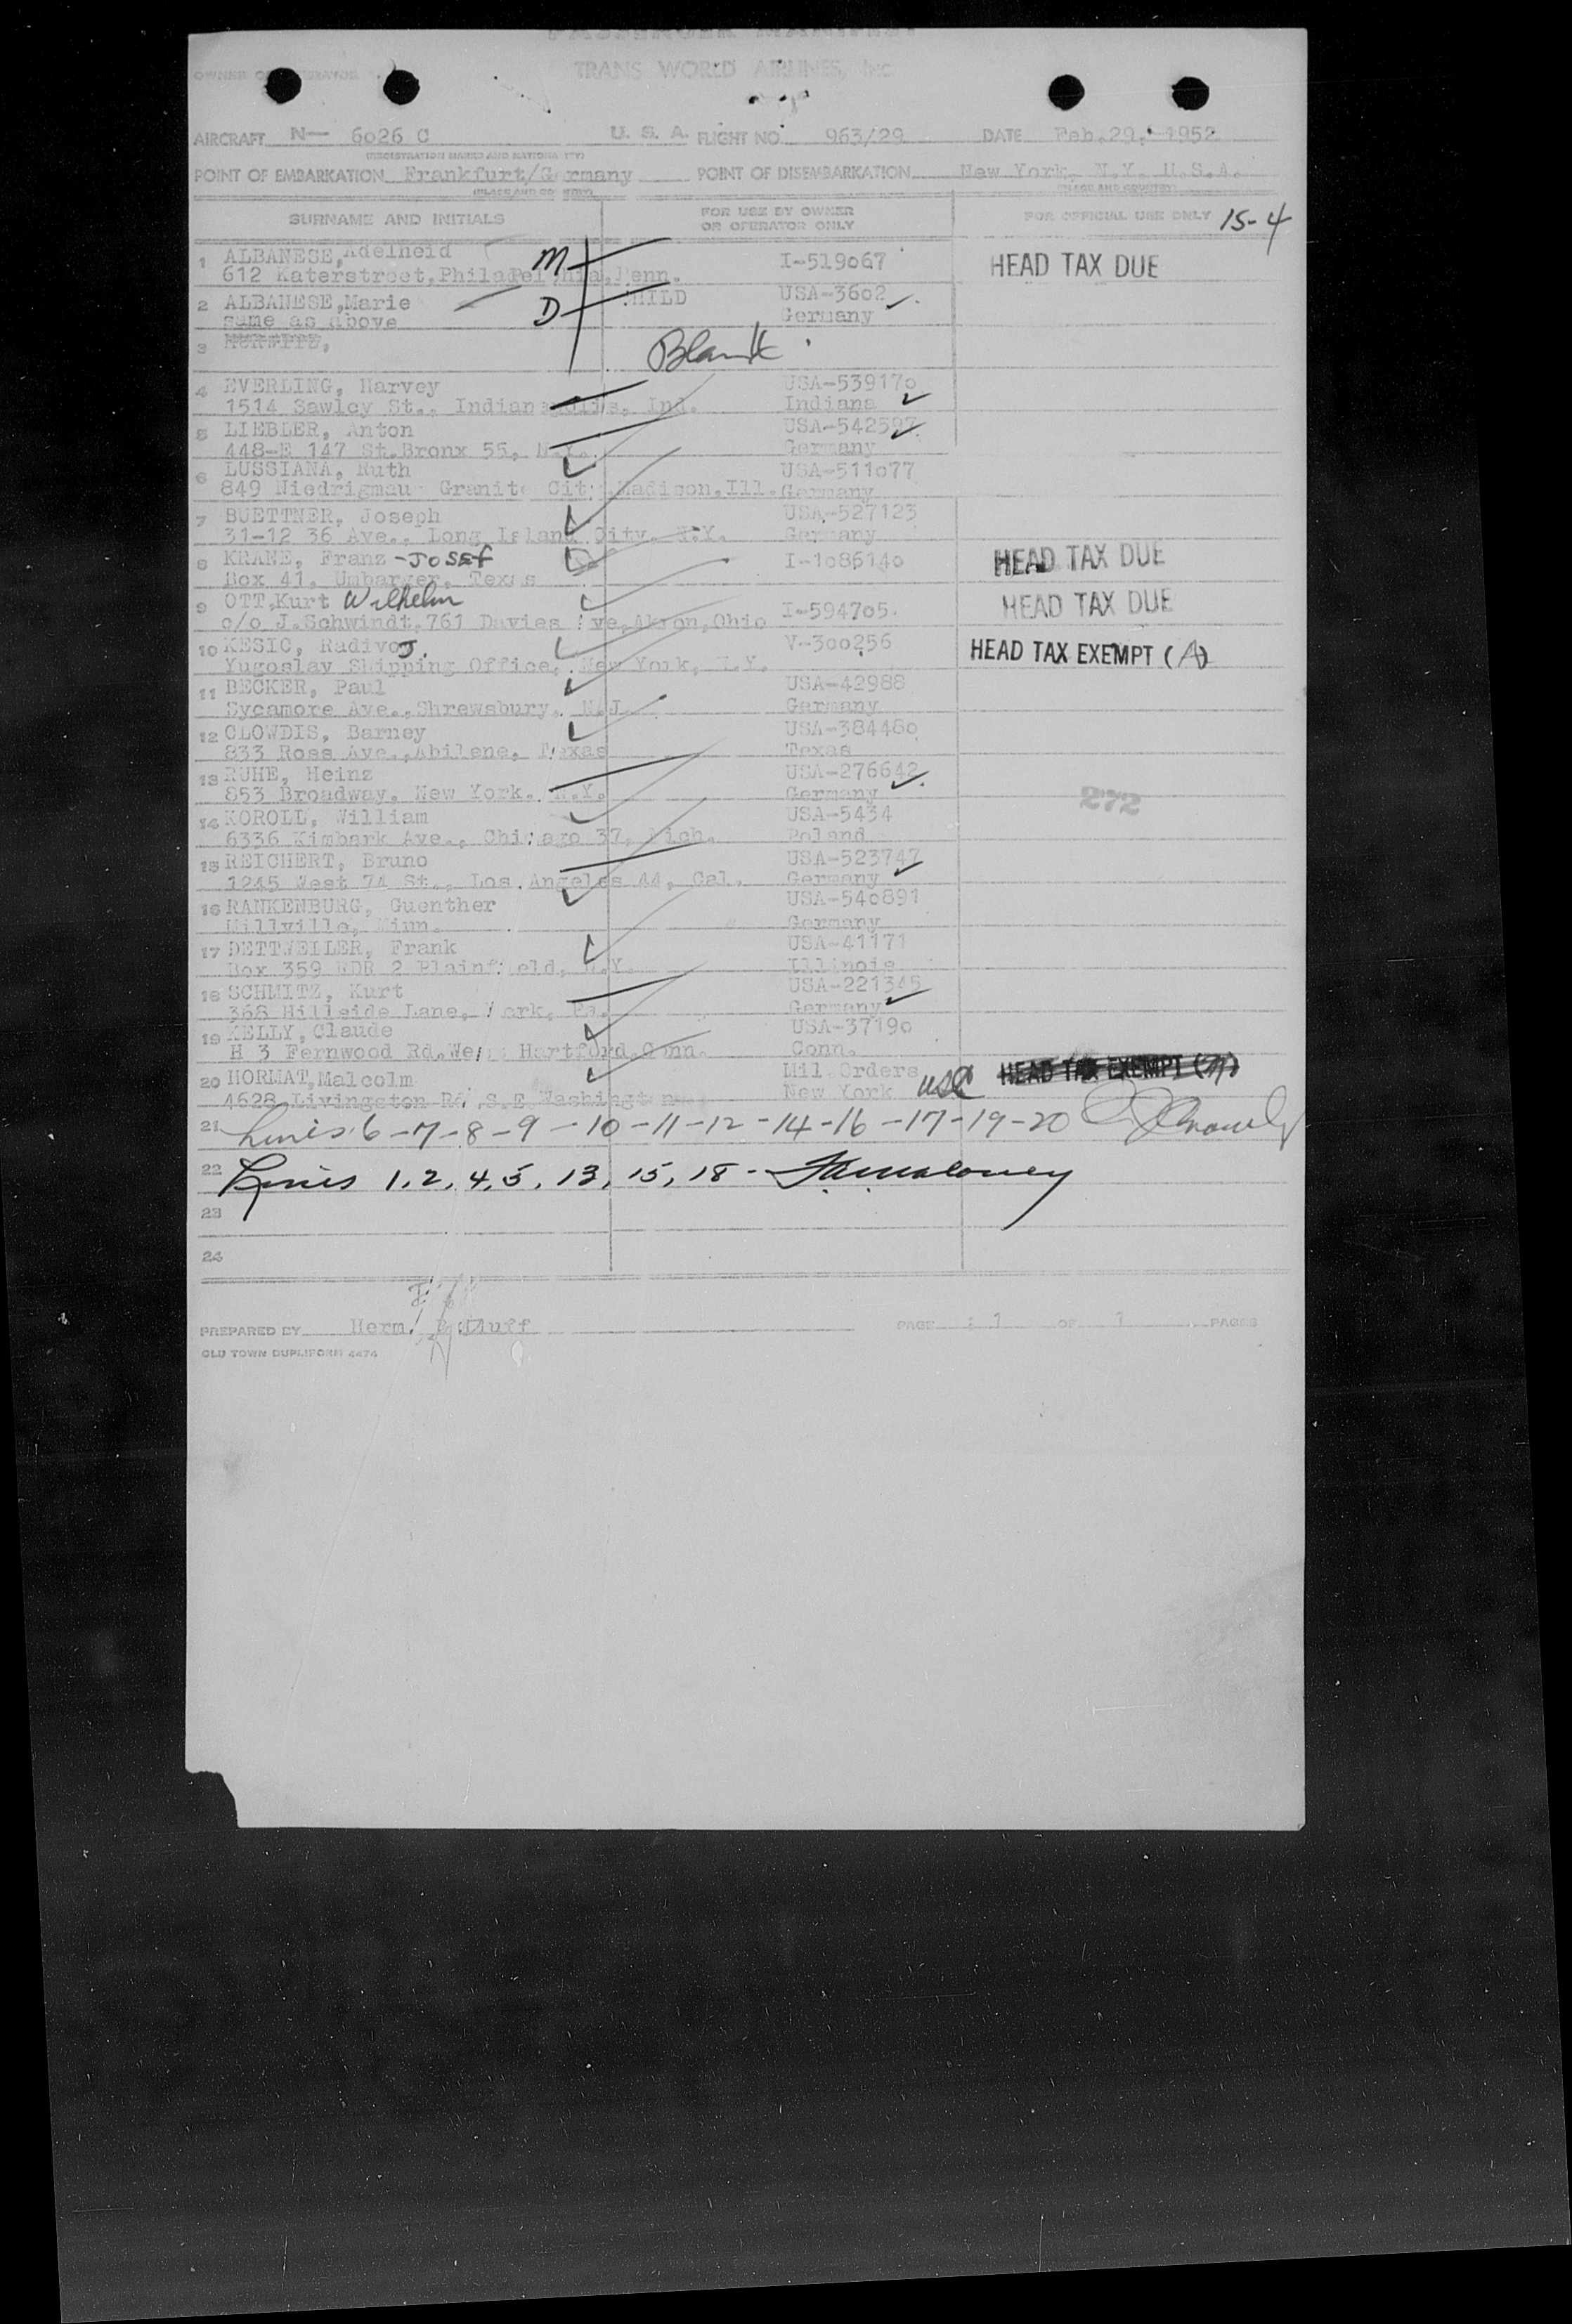 PASSENGER MANIFEST
OWNER OR OPERATOR TRANS WORLD AIRLINES, Inc
AIRCRAFT N- 6026 C U. S. A. FLIGHT NO. 963/29 DATE Feb.29, 1952
(REGISTRATION MARKS AND NATIONALITY)
POINT OF EMBARKATION Frankfurt/Germany POINT OF DISEMBARKATION New York, N.Y. U.S.A.
(PLACE AND COUNTRY) (PLACE AND COUNTRY)
SURNAME AND INITIALS FOR USE BY OWNER OR OPERATOR ONLY FOR OFFICIAL USE ONLY 15-4
1 ALBANESE, Adelheid M I-519067 HEAD TAX DUE
612 Katerstreet, Philadelphia, Penn.
2 ALBANESE, Marie D CHILD USA-3602
same as above Germany
3 Blank
4 EVERLING, Harvey USA-539170
1514 Sawley St., Indianapolis, Ind. Indiana
5 LIEBLER, Anton USA-542597
448-E 147 St.Bronx 55, N.Y. Germany
6 LUSSIANA, Ruth USA-511077
849 Niedrigmau Granite City, Madison, Ill. Germany
7 BUETTNER, Joseph USA-527123
31-12 36 Ave., Long Island City, N.Y. Germany
8 KRANE, Franz -JOSEf I-1086140 HEAD TAX DUE
Box 41, Umbarger, Texas
9 OTT, Kurt Wilhelm I-594705 HEAD TAX DUE
c/o J.Schwindt, 761 Davies Ave, Akron, Ohio
10 KESIC, Radivoj. V-300256 HEAD TAX EXEMPT (A)
Yugoslav Shipping Office, New York, N.Y.
11 BECKER, Paul USA-42988
Sycamore Ave., Shrewsbury, N.J. Germany
12 CLOWDIS, Barney USA-384460
833 Ross Ave., Abilene, Texas Texas
13 RUHE, Heinz USA-276642
853 Broadway, New York, N.Y. Germany
272
14 KOROLL, William USA-5434
6336 Kimbark Ave., Chicago 37, Mich. Poland
15 REICHERT, Bruno USA-523747
1245 West 74 St., Los Angeles 44, Cal. Germany
16 RANKENBURG, Guenther USA-540891
Millville, Minn. Germany
17 DETTWEILER, Frank USA-41171
Box 359 RDR 2 Plainfield, N.Y. Illinois
18 SCHMITZ, Kurt USA-221345
368 Hillside Lane, York, Pa. Germany
19 KELLY, Claude USA-37190
H 3 Fernwood Rd. West Hartford, Conn. Conn.
20 HORMAT, Malcolm Mil. Orders HEAD TAX EXEMPT
4628 Livingston Rd, S.E. Washington New York USC
21 Lines 6-7-8-9-10-11-12-14-16-17-19-20
22 Lines 1, 2, 4, 5, 13, 15, 18 -
23
24
PREPARED BY Herm.
PAGE 1 OF 1 PAGES
OLD TOWN DUPLIFORM 4474